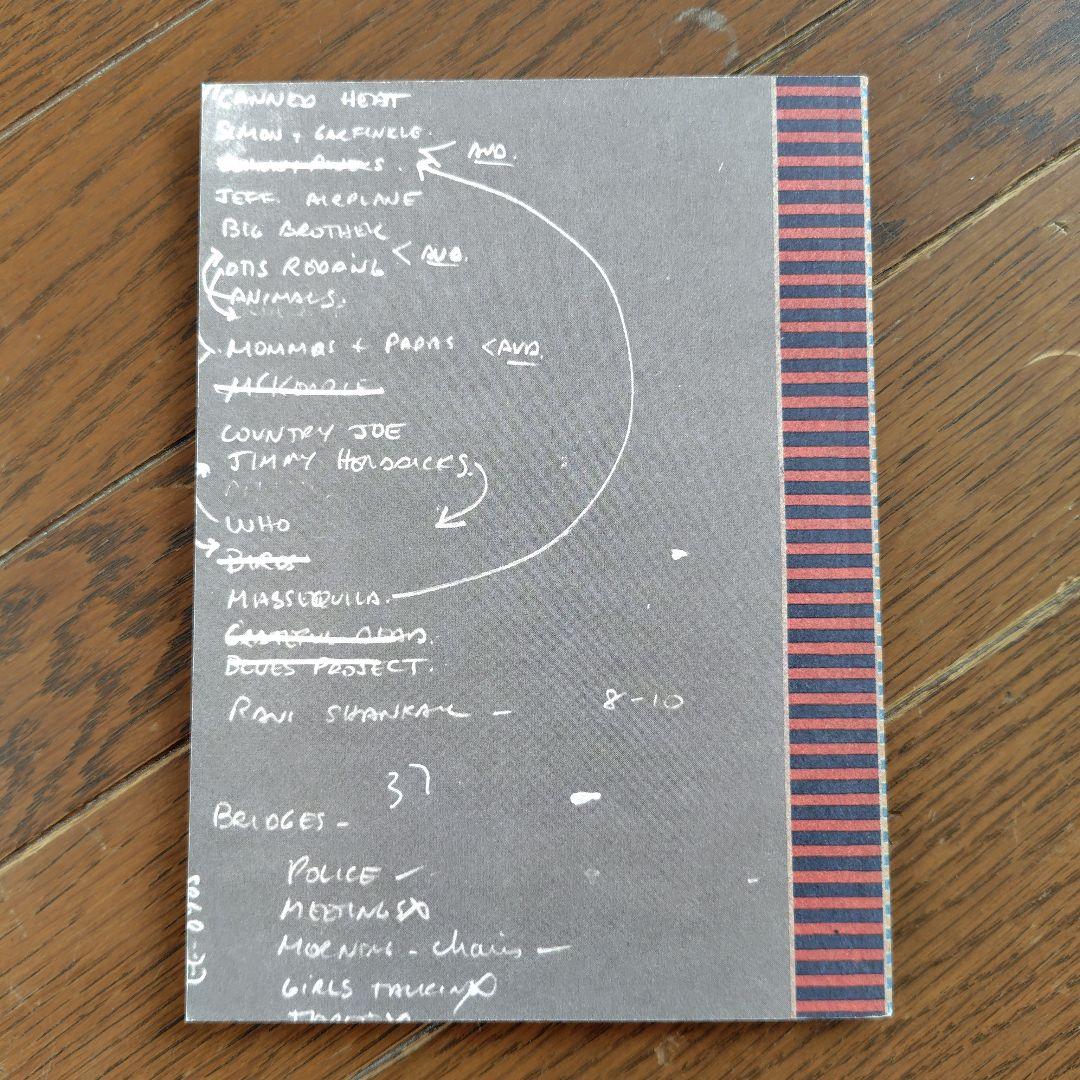 CANNED HEAT
SIMON + GARFINKLE.
< AUD.
JEFF. AIRPLANE
BIG BROTHER
OTIS REDDING < AUD.
ANIMALS.
MOMMAS + PAPAS < AUD.
COUNTRY JOE
JIMMY HENDRICKS.
WHO
BIRDS
GRATEFUL DEAD.
BLUES PROJECT.
RAVI SHANKAR — 8-10
37
BRIDGES -
POLICE -
MEETINGS
MORNING - chairs -
GIRLS TALKING